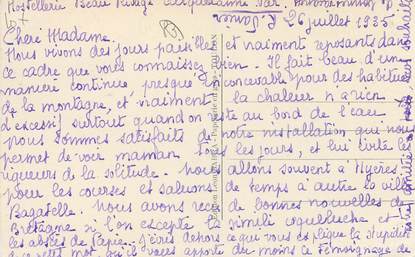 Hostellerie Beau Rivage Carqueiranne Var.
26 juillet 1935
Chère Madame.
Nous vivons des jours paisibles et vraiment reposants dans
ce cadre que vous connaissez bien. Il fait beau d'une
manière continue, presque inconcevable pour des habitués
de la montagne, et vraiment la chaleur n'a rien
d'excessif surtout quand on reste au bord de l'eau.
Nous sommes satisfaits de notre installation qui nous
permet de voir maman tous les jours, et lui évite les
rigueurs de la solitude. Nous allons souvent à Hyères
pour les courses et saluons de temps à autre la villa
Bagatelle. Nous avons reçu de bonnes nouvelles de
Bretagne si l'on excepte la simili coqueluche et
les abcès de Pepie. J'écris dehors ce qui vous explique la stupidité
de ce petit mot, qu'il vous apporte du moins le témoignage de